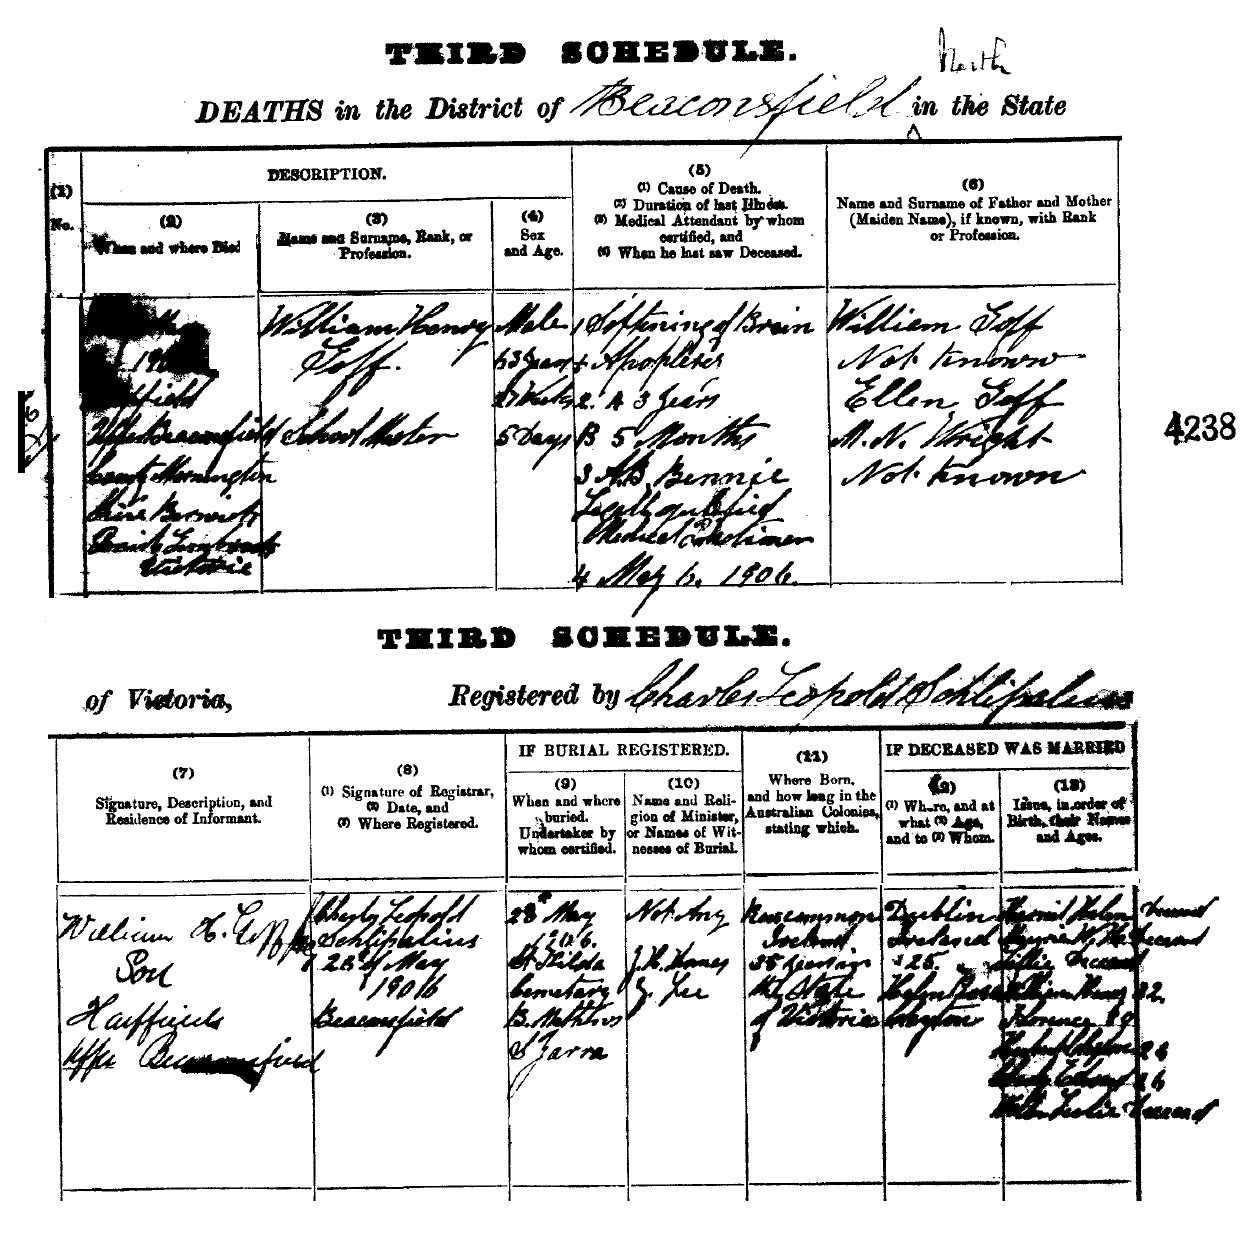 THIRD SCHEDULE.
North
DEATHS in the District of Beaconsfield in the State
(1)
No.
DESCRIPTION.
(2)
When and where Died
(3)
Name and Surname, Rank, or
Profession.
(4)
Sex
and Age.
(5)
(1) Cause of Death.
(2) Duration of last Illness.
(3) Medical Attendant by whom
certified, and
(4) When he last saw Deceased.
(6)
Name and Surname of Father and Mother
(Maiden Name), if known, with Rank
or Profession.
field
Upper Beaconsfield
County Mornington
Shire Berwick
Victoria
William Henry
Goff.
School Master
Male
63 Years
27 Weeks
5 Days
1 Softening of Brain
+ Apoplexy
2. A 3 Years
B 5 Months
3 A.B. Bennie
Legally qualified
Medical
4 May 6. 1906.
William Goff
Not Known
Ellen Goff
M.N. Wright
Not Known
4238
THIRD SCHEDULE.
of Victoria,
Registered by Charles Leopold Schlipalius
(7)
Signature, Description, and
Residence of Informant.
(8)
(1) Signature of Registrar,
(2) Date, and
(3) Where Registered.
IF BURIAL REGISTERED.
(9)
When and where
buried.
Undertaker by
whom certified.
(10)
Name and Reli-
gion of Minister,
or Names of Wit-
nesses of Burial.
(11)
Where Born,
and how long in the
Australian Colonies,
stating which.
IF DECEASED WAS MARRIED
(12)
(1) Where, and at
what (2) Age,
and to (3) Whom.
(13)
Issue, in order of
Birth, their Names
and Ages.
William H. Goff
Son
Harffield
Upper Beaconsfield
Charles Leopold
Schlipalius
28th May
1906
Beaconsfield
28th May
1906.
St Kilda
Cemetery
B. Matthews
S Yarra
Not Any
J.H. Homes
J. Lee
Roscommon
Ireland
35 years in
the State
of Victoria
Dublin
Ireland
25.
Helen
Harriet Helen Deceased
Deceased
Lillie Deceased
William Henry 32.
Florence 29
Herbert 28
Charles Edward 26
Leslie Deceased